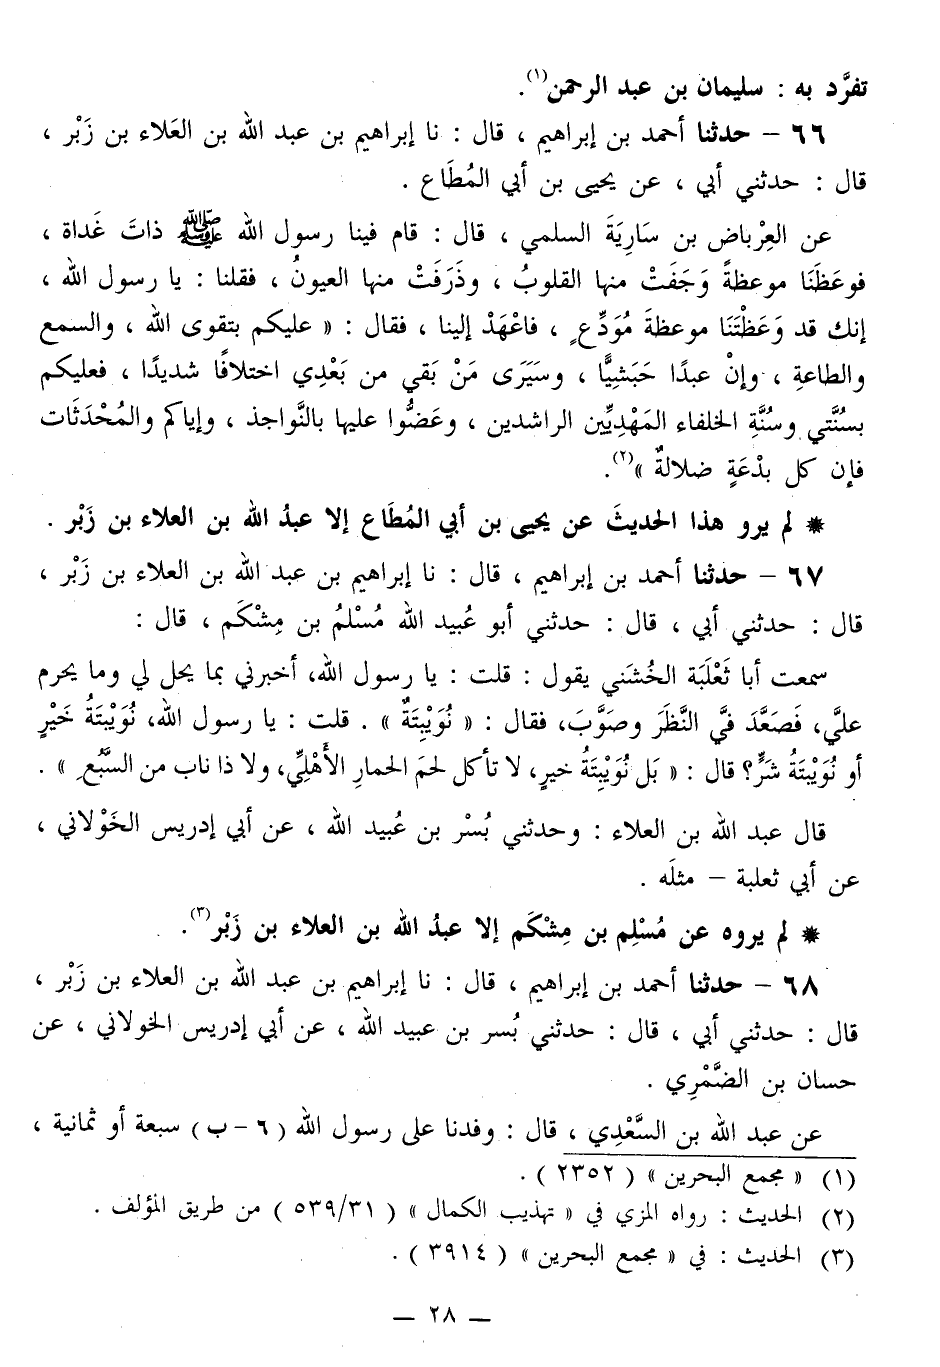 تفرَّد به : سليمان بن عبد الرحمن(١).
٦٦ – حدثنا أحمد بن إبراهيم ، قال : نا إبراهيم بن عبد الله بن العَلاء بن زَبْر ،
قال : حدثني أبي ، عن يحيى بن أبي المُطَاع .
عن العِرْباض بن سَارِيَةَ السلمي ، قال : قام فينا رسول الله ﷺ ذاتَ غَداة ،
فوعَظَنَا موعظةً وَجَفَتْ منها القلوبُ ، وذَرَفَتْ منها العيونُ ، فقلنا : يا رسول الله ،
إنك قد وَعَظْتَنَا موعظةَ مُوَدِّعٍ ، فاعْهَدْ إلينا ، فقال : « عليكم بتقوى الله ، والسمع
والطاعةِ ، وإنْ عبدًا حَبَشِيًّا ، وسَيَرَى مَنْ بَقي من بَعْدِي اختلافًا شديدًا ، فعليكم
بسُنَّتي وسُنَّةِ الخلفاء المَهْدِيِّين الراشدين ، وعَضُّوا عليها بالنَّواجذ ، وإياكم والمُحْدَثَات
فإن كل بدْعَةٍ ضلالةٌ »(٢).
* لم يرو هذا الحديثَ عن يحيى بن أبي المُطَاع إلا عبدُ الله بن العلاء بن زَبْر .
٦٧ – حدثنا أحمد بن إبراهيم ، قال : نا إبراهيم بن عبد الله بن العلاء بن زَبْر ،
قال : حدثني أبي ، قال : حدثني أبو عُبيد الله مُسْلمُ بن مِشْكَم ، قال :
سمعت أبا ثَعْلَبَة الخُشَني يقول : قلت : يا رسول الله، أخبرني بما يحل لي وما يحرم
عليَّ، فَصَعَّدَ فيَّ النَّظَرَ وصَوَّبَ، فقال : « نُوَيْبِتَةٌ » . قلت : يا رسول الله، نُوَيْبتَةُ خَيْرٍ
أو نُوَيْبتَةُ شرٍّ؟ قال : « بَل نُوَيْبِتَةُ خيرٍ، لا تأكل لحمَ الحمارِ الأَهْلِيِّ، ولا ذا ناب من السَّبُع » .
قال عبد الله بن العلاء : وحدثني بُسْر بن عُبيد الله ، عن أبي إدريس الخَوْلاني ،
عن أبي ثعلبة – مثلَه .
* لم يروه عن مُسْلِم بن مِشْكَم إلا عبدُ الله بن العلاء بن زَبْر(٣).
٦٨ – حدثنا أحمد بن إبراهيم ، قال : نا إبراهيم بن عبد الله بن العلاء بن زَبْر ،
قال : حدثني أبي ، قال : حدثني بُسر بن عبيد الله ، عن أبي إدريس الخولاني ، عن
حسان بن الضَّمْرِي .
عن عبد الله بن السَّعْدِي ، قال : وفدنا على رسول الله ( ٦ – ب ) سبعة أو ثمانية ،
(١) « مجمع البحرين » ( ٢٣٥٢ ) .
(٢) الحديث : رواه المزي في « تهذيب الكمال » ( ٥٣٩/٣١ ) من طريق المؤلف .
(٣) الحديث : في « مجمع البحرين » ( ٣٩١٤ ) .
— ٢٨ —